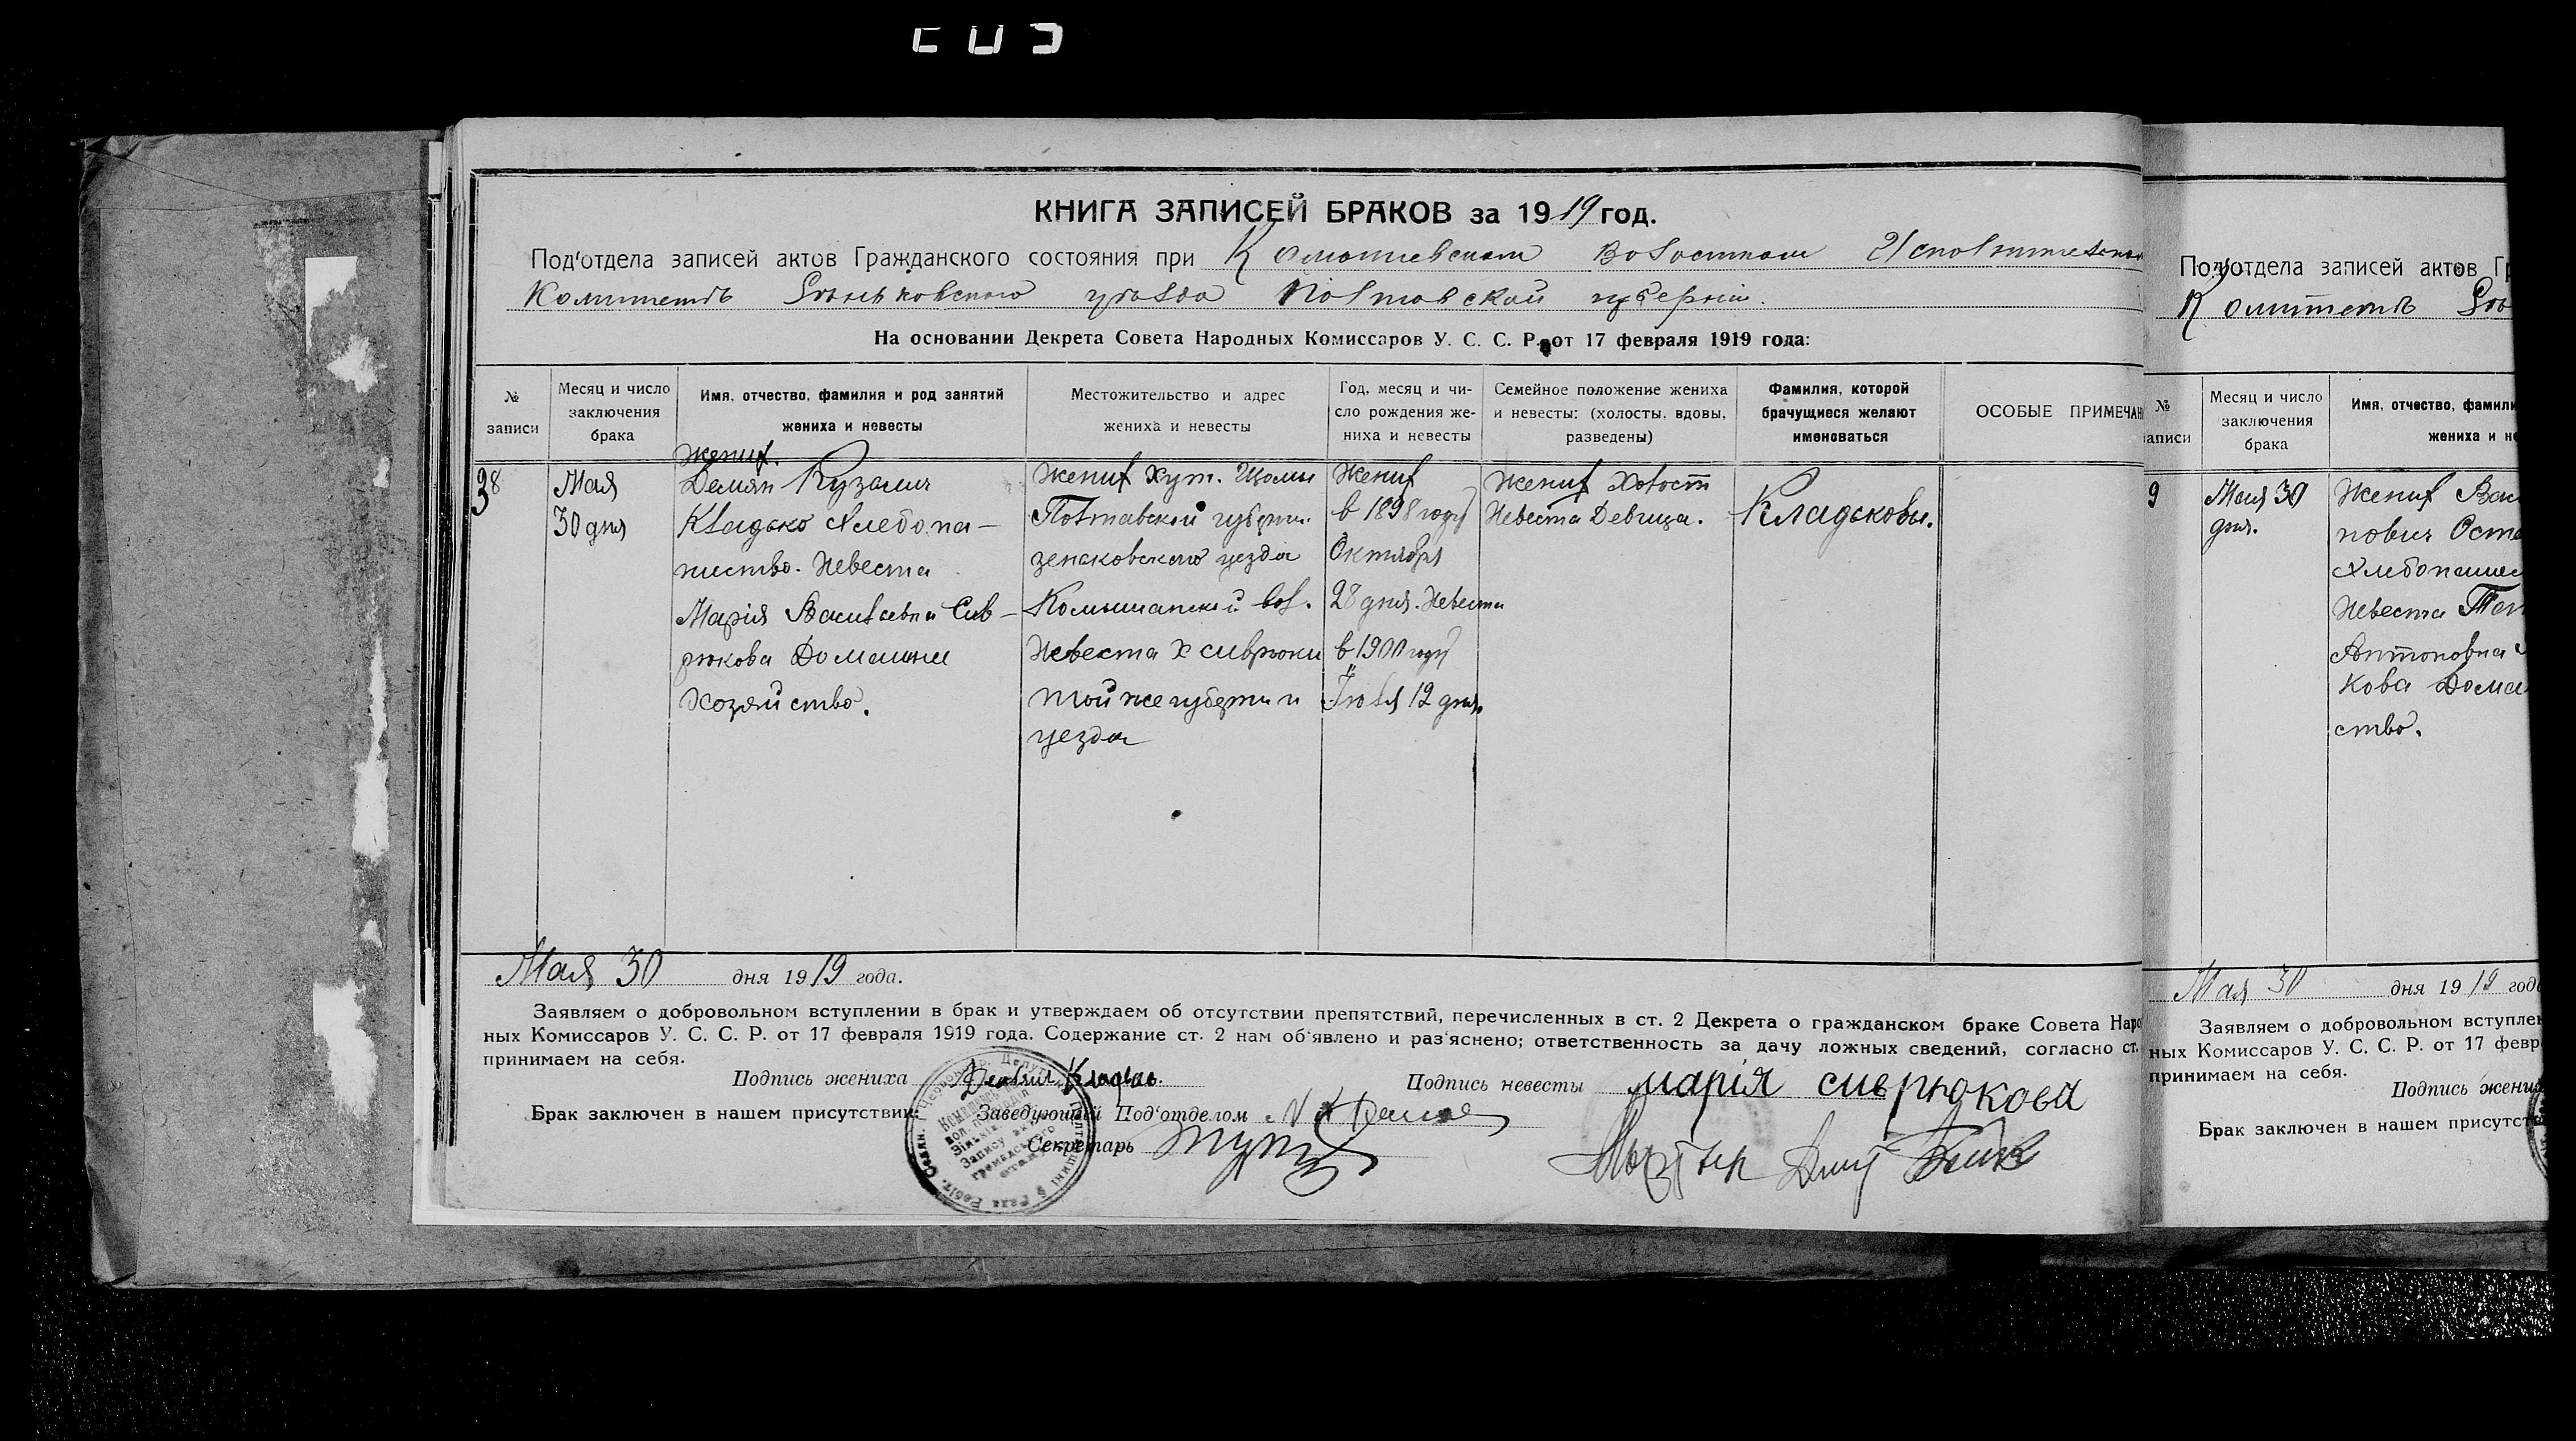 КНИГА ЗАПИСЕЙ БРАКОВ за 1919 год.
Под'отдела записей актов Гражданского состояния при Комышевском Волостном Исполнительном
Комитетъ Зѣньковского уѣзда Полтавской губернии.
На основании Декрета Совета Народных Комиссаров У. С. С. Р. от 17 февраля 1919 года:
№ записи
Месяц и число заключения брака
Имя, отчество, фамилия и род занятий жениха и невесты
Местожительство и адрес жениха и невесты
Год, месяц и чи-
сло рождения же-
ниха и невесты
Семейное положение жениха и невесты: (холосты, вдовы, разведены)
Фамилия, которой брачущиеся желают именоваться
ОСОБЫЕ ПРИМЕЧАН
38
Мая
30 дня
Жених.
Демян Кузмич
Кладько Хлебопа-
шество. Невеста
Марія Васильевна Сив-
рюкова Домашнее
хозяйство.
Жених Хут.
Полтавской губерни.
зенковского уезда
Комышанской вол.
Невеста Х сиврюки
той же губерни и
уезда
Жених
в 1898 году
Октября
28 дня. Невеста
в 1900 году
Июля 12 дня.
Жених Холост
Невеста Девица.
Кладьковы.
Мая 30 дня 1919 года.
Заявляем о добровольном вступлении в брак и утверждаем об отсутствии препятствий, перечисленных в ст. 2 Декрета о гражданском браке Совета Наро
ных Комиссаров У. С. С. Р. от 17 февраля 1919 года. Содержание ст. 2 нам об'явлено и раз'яснено; ответственность за дачу ложных сведений, согласно ст.
принимаем на себя.
Подпись жениха
Подпись невесты марія сиврюкова
Брак заключен в нашем присутствии:
Заведующий Под'отделом
Секретарь
Запису
Под'отдела записей актов Гр
Комитетъ Зѣ
№
записи
Месяц и число заключения брака
Имя, отчество, фамили
жениха и не
9
Мая 30
дня.
Жених Вас
нович Оста
Хлебопашес
Невеста
Антоновна
кова Дома
ство.
Мая 30 дня 1919 года
Заявляем о добровольном вступлен
ных Комиссаров У. С. С. Р. от 17 февр
принимаем на себя.
Подпись жених
Брак заключен в нашем присутств